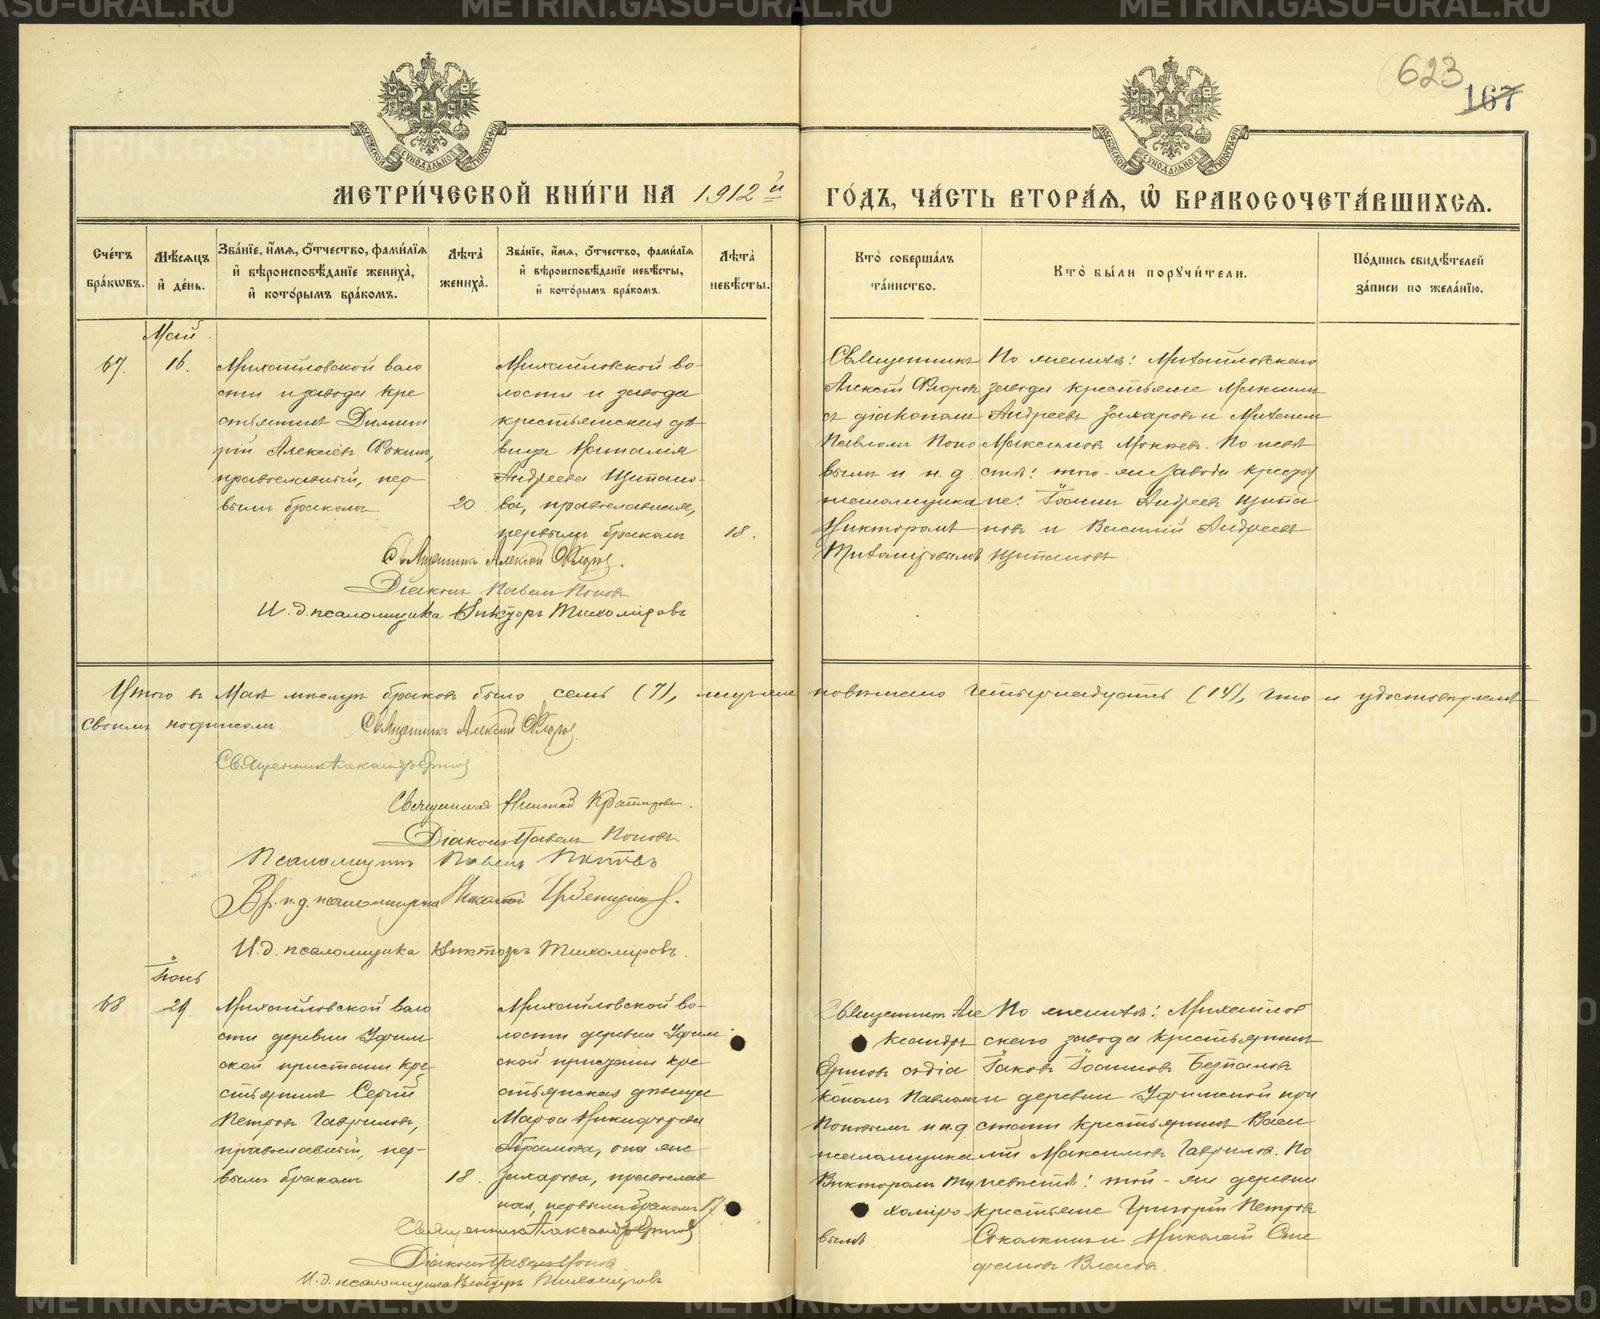 623
167
МЕТРИ́ЧЕСКОЙ КНИ́ГИ НА 1912й ГО́ДЪ, ЧА́СТЬ ВТОРА́Я, Ѡ҆ БРАКОСОЧЕТА́ВШИХСЯ.
Сче́тъ бра́кѡвъ.
Мѣ́сяцъ и҆ де́нь.
Зва́нїе, и҆́мя, ѻ҆́тчество, фами́лїя и҆ вѣроисповѣ́данїе жениха̀, и҆ кото́рымъ бра́комъ.
Лѣ́та жениха̀.
Зва́нїе, и҆́мя, ѻ҆́тчество, фами́лїя и҆ вѣроисповѣ́данїе невѣ́сты, и҆ кото́рымъ бра́комъ.
Лѣ́та невѣ́сты.
Кто̀ соверша́лъ та́инство.
Кто̀ бы́ли поручи́тели.
По́дпись свидѣ́телей за́писи по жела́нїю.
Май.
67.
16.
Михайловской воло
сти и завода кре
стьянинъ Димит
рій Алексѣевъ Фокинъ,
православный, пер-
вымъ бракомъ
20
Михайловской во-
лости и завода
крестьянская дѣ
вица Наталія
Андреева Щипано-
ва, православная,
первымъ бракомъ
18.
Священникъ
Алексій Флоров
съ діакономъ
Павломъ Попо
вымъ и и.д
псаломщика
Викторомъ
Тихомировымъ
По женихѣ: Михайловскаго
завода крестьяне
Андреевъ Захаровъ и Михаилъ
Максимовъ По невѣ
стѣ: того-же завода крестья
не: Іоаннъ Андреевъ Щипа
новъ и Василій Андреевъ
Щипановъ
Священникъ Алексій Флоров.
Діаконъ Павелъ Поповъ
И.д. псаломщика Викторъ Тихомировъ
Итого въ Маѣ мѣсяцѣ браковъ было семь (7), лицъ же повѣнчано четырнадцать (14), что и удостовѣряемъ
своимъ подписомъ. Священникъ Алексій Флоров
Священникъ Александръ
Священникъ Николай
Діаконъ Павелъ Поповъ
Псаломщикъ Павелъ
Вр. и.д. псаломщика Николай
И.д. псаломщика Викторъ Тихомировъ.
Іюнь
68
29.
Михайловской воло
сти деревни Уфим
ской пристани кре
стьянинъ Сергій
Петровъ Гавриловъ,
православный, пер-
вымъ бракомъ
18.
Михайловской во-
лости деревни Уфим
ской пристани кре
стьянская дѣвица
Марѳа Никифорова
Абрамова, она же
Захарова, православ
ная, первымъ бракомъ
17
Священникъ Але
ксандръ
съ діа
кономъ Павломъ
Поповымъ и и.д
псаломщика
Викторомъ Ти
хомиро
вымъ
По женихѣ: Михайлов
скаго завода крестьянинъ
Іаковъ Іоанновъ
и деревни Уфимской при
стани крестьянинъ Васи
лій Максимовъ Гавриловъ. По
невѣстѣ: той-же деревни
крестьяне Григорій Петровъ
и Николай Сте
фановъ Власовъ.
Священникъ Александръ
Діаконъ Павелъ Поповъ
И.д. псаломщика Викторъ Тихомировъ
METRIKI.GASO-URAL.RU